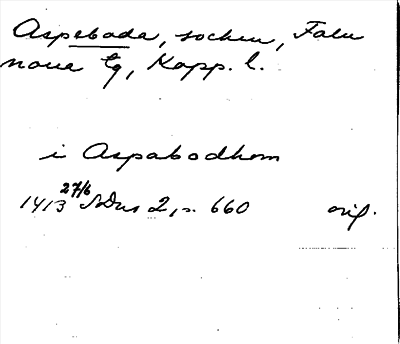 Aspeboda, socken, Falu
norra tg, Kopp. l.
i Aspabodhom
27/6
1413 SDns 2, s. 660 orig.